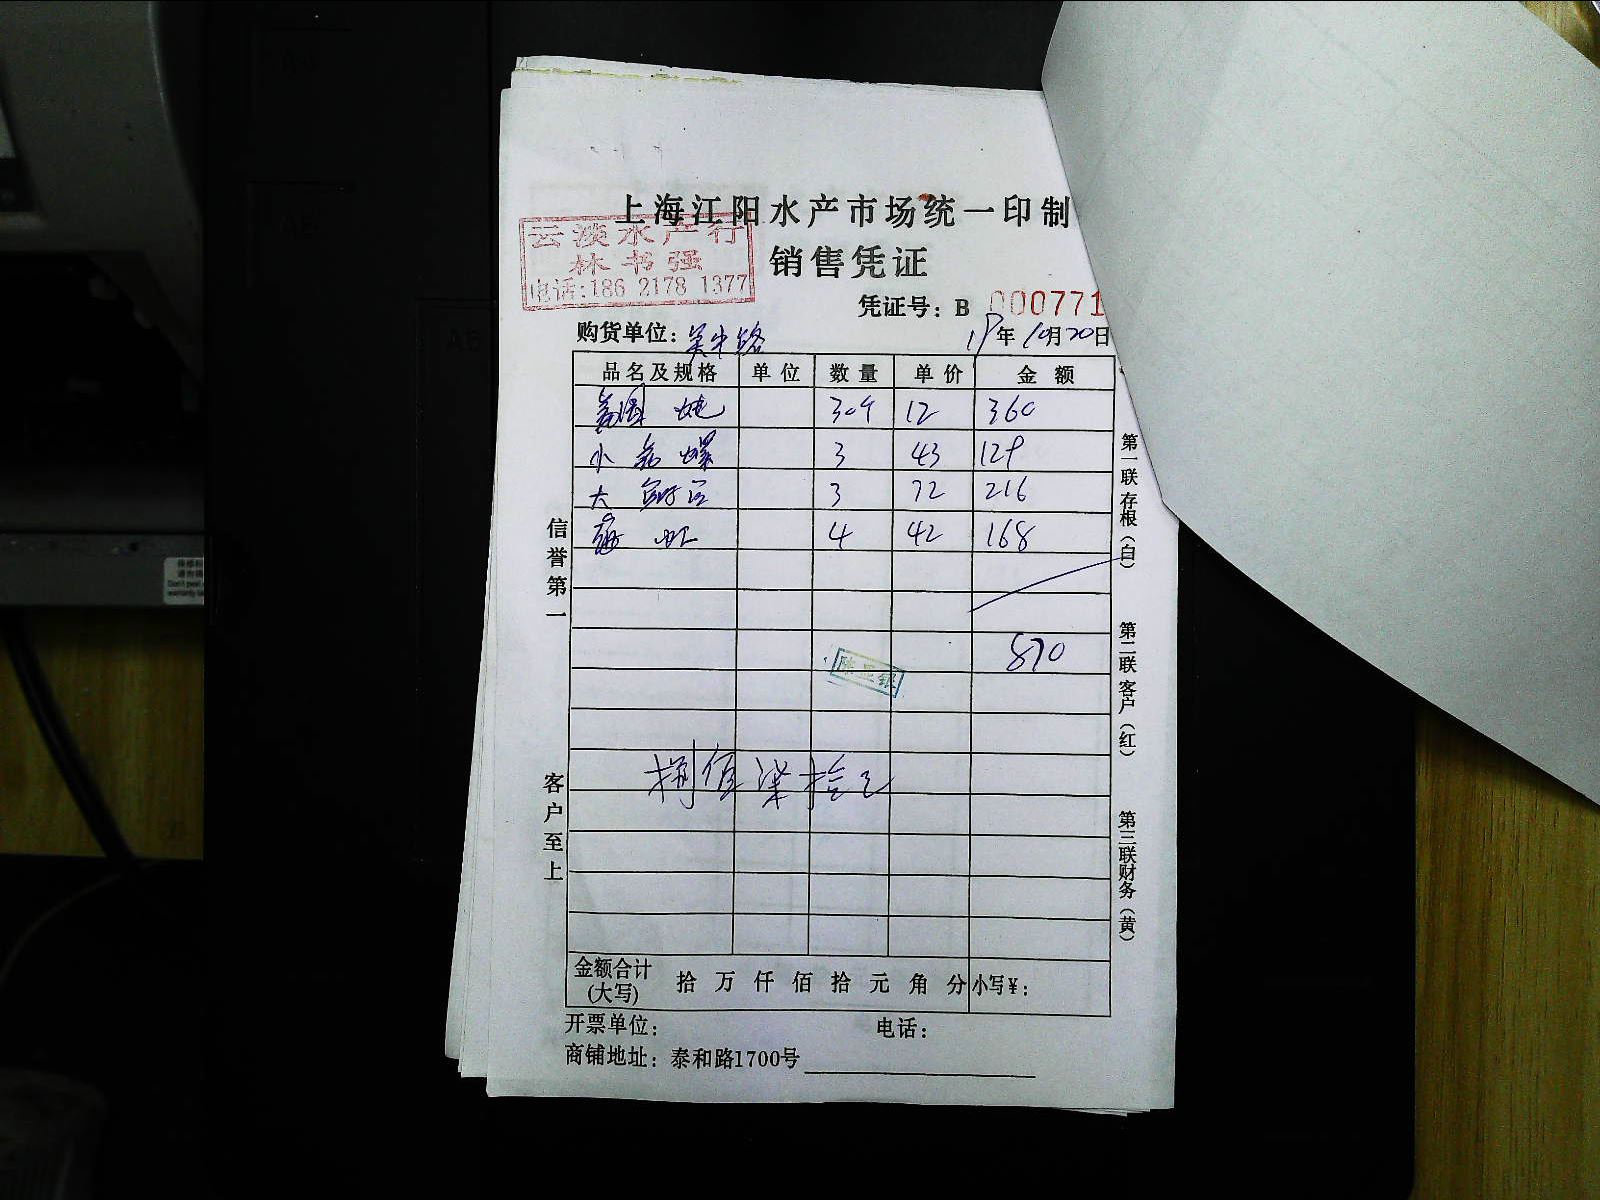 上海江阳水产市场统一印制
云淡水产行
林书强
电话:186 2178 1377
销售凭证
凭证号: B 000771
购货单位: 吴中路 19年10月20日
品名及规格 单位 数量 单价 金额
12 360
小 螺 3 43 129
大 3 72 216
海虹 4 42 168
870
捌佰柒拾元
金额合计(大写) 拾 万 仟 佰 拾 元 角 分 小写¥:
开票单位: 电话:
商铺地址: 泰和路1700号
信誉第一
客户至上
第一联存根(白)
第二联客户(红)
第三联财务(黄)